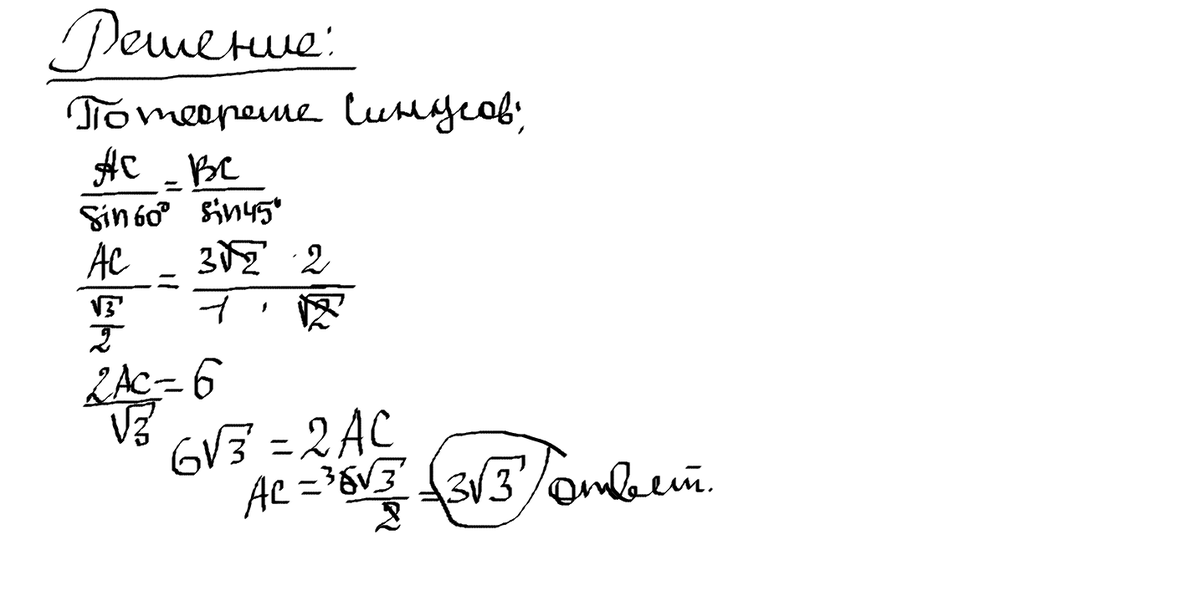 Решение:
По теореме синусов:
AC/sin60° = BC/sin45°
AC/(√3/2) = 3√2 · 2/1 · √2
2AC/√3 = 6
6√3 = 2AC
AC = 6√3/2 = 3√3 ответ.